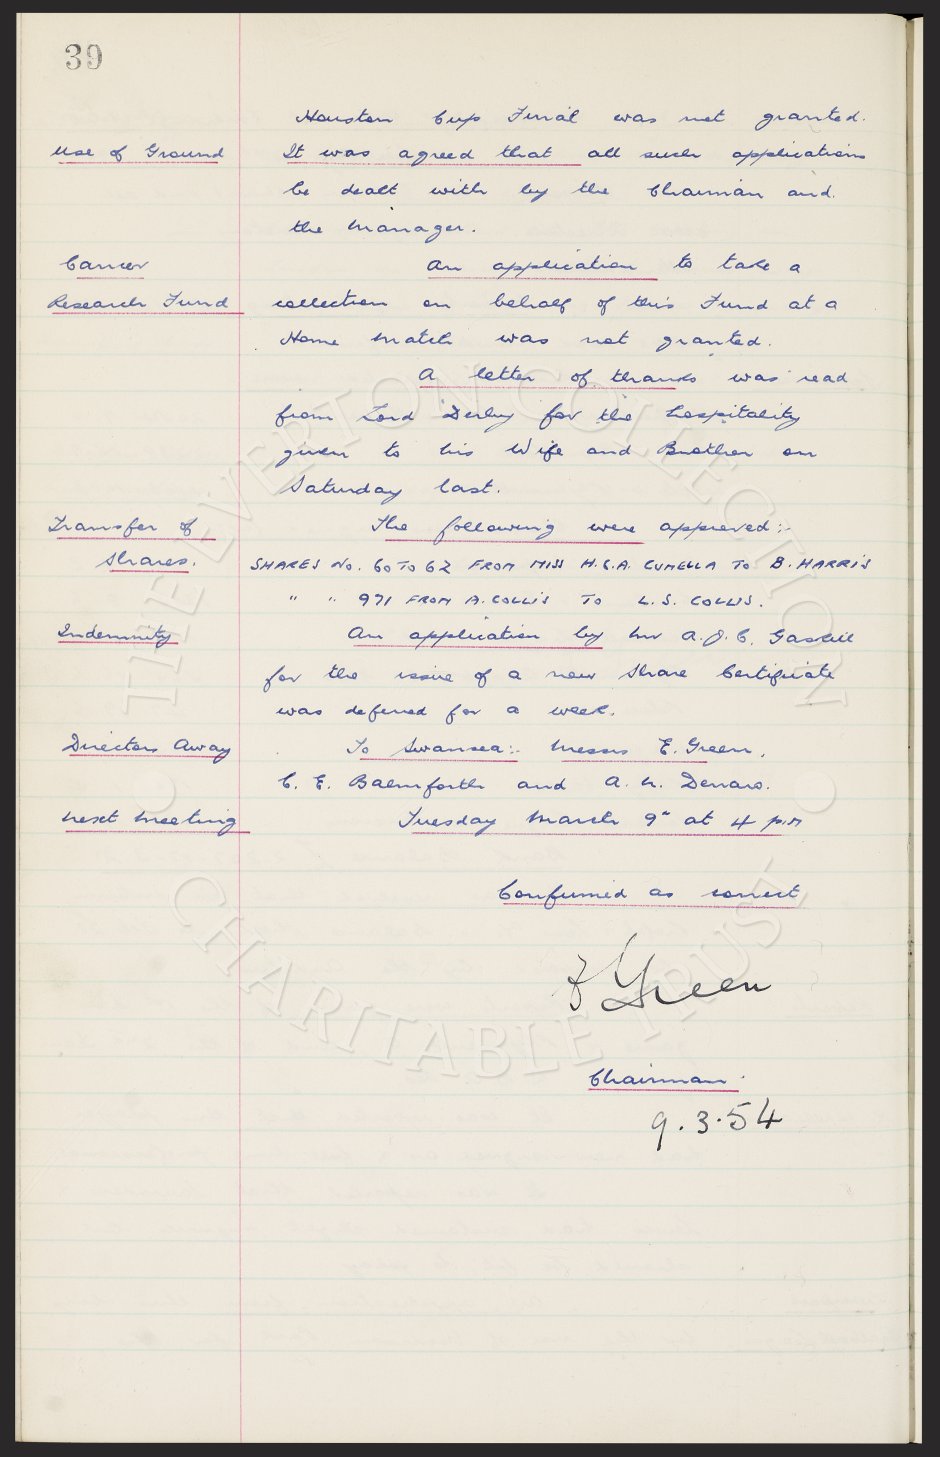 39
Houston Cup Final was not granted.
Use of Ground It was agreed that all such applications
be dealt with by the Chairman and
the Manager.
Cancer An application to take a
Research Fund collection on behalf of this Fund at a
Home Match was not granted.
A letter of thanks was read
from Lord Derby for the hospitality
given to his Wife and Brother on
Saturday last.
Transfer of The following were approved:-
Shares. SHARES NO. 60 TO 62 FROM MISS H.C.A. CUMELLA TO B. HARRIS
" " 971 FROM A. COLLIS TO L.S. COLLIS.
Indemnity An application by Mr A.J.C. Gaskill
for the issue of a new Share Certificate
was deferred for a week.
Directors Away To Swansea:- Messrs E. Green,
C. E. Balmforth and A. N. Denaro.
Next Meeting Tuesday March 9" at 4 p.m
Confirmed as correct
Green
Chairman.
9.3.54
THE EVERTON COLLECTION
CHARITABLE TRUST